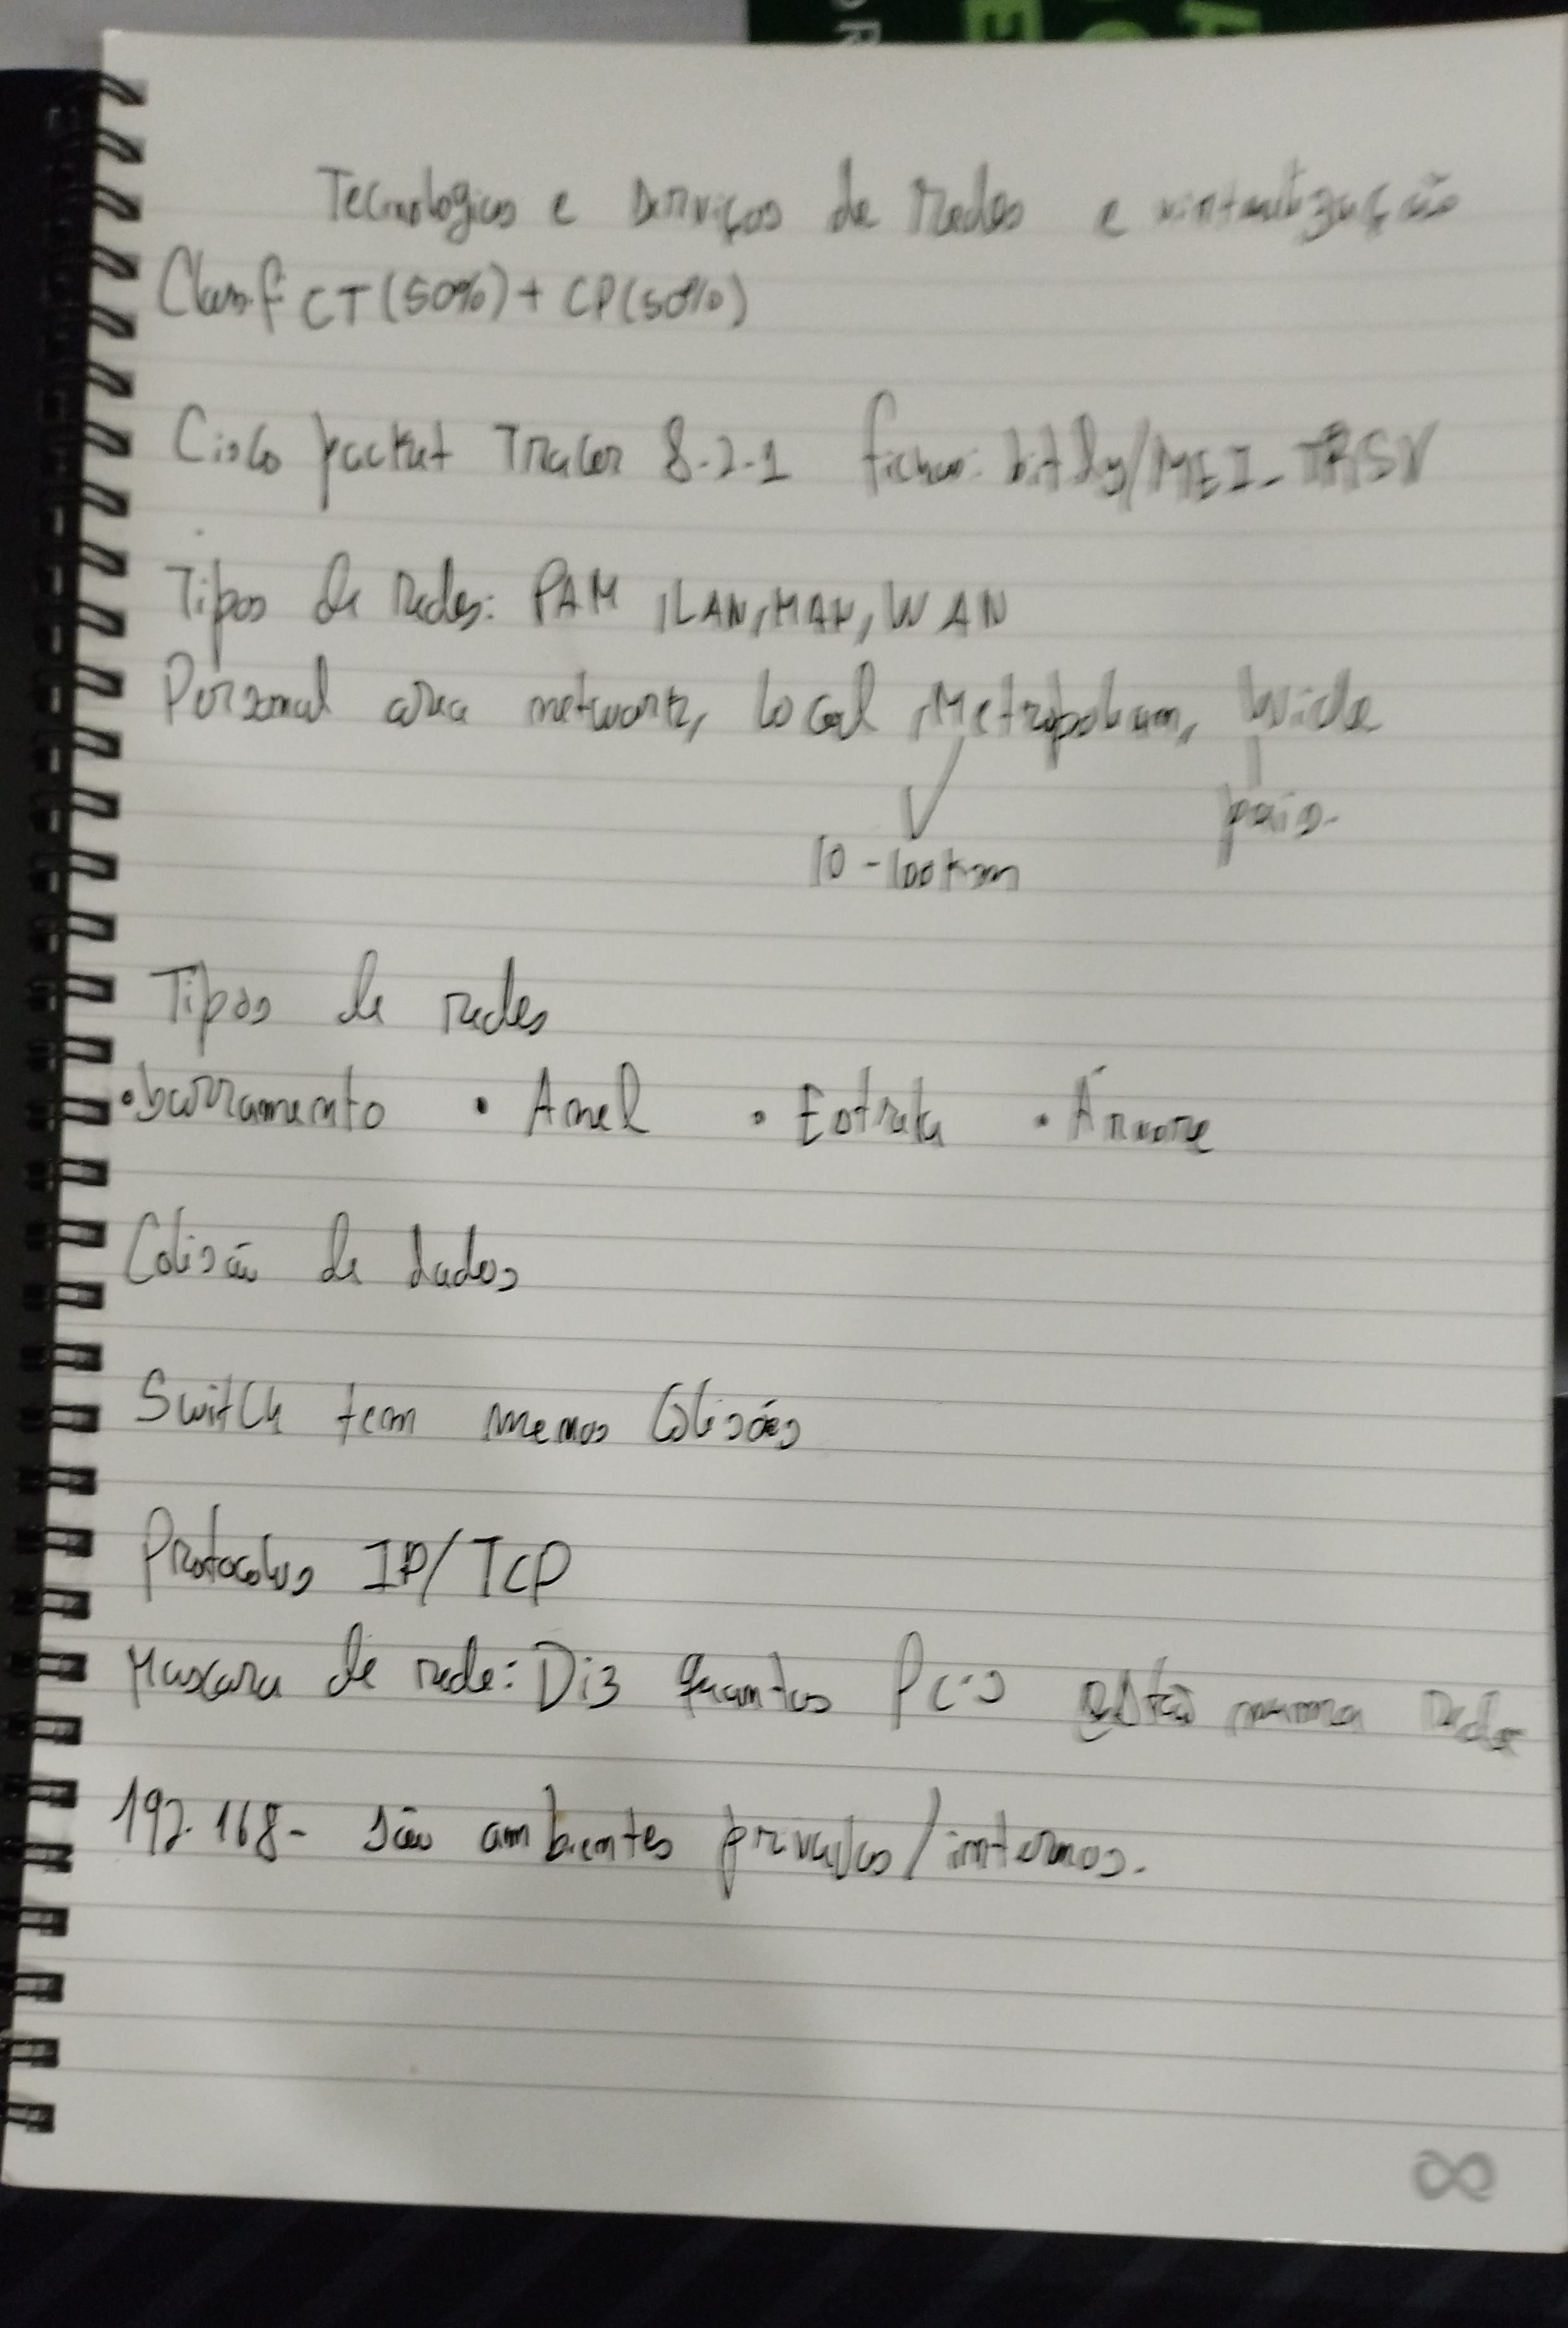 Tecnologias e serviços de redes e virtualização
Classf CT (50%) + CP (50%)
Cisco packet Tracer 8.2.1 bit.ly/MEI_TRSV
Tipos de redes: PAM, LAN, MAN, WAN
Personal area network, local, Metropolitan, Wide
país.
10-100km
Tipos de redes
• barramento • Anel • Estrela • Árvore
Colisão de dados
Switch tem menos Colisões
Protocolos IP/TCP
Mascara de rede: Diz quantos Pc's estão numa rede
192.168- são ambientes privados/internos.
∞